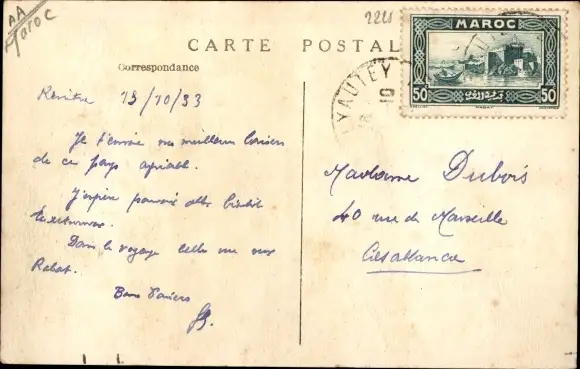 AA
Maroc
2221
CARTE POSTAL
Correspondance
MAROC
50 50
RABAT
LYAUTEY
10
Kenitra 13/10/33
Je t'envoie mes meilleurs baisers
de ce pays agréable.
J'espère pouvoir aller bientôt
Dans le voyage belle vue sur
Rabat.
Bons baisers
Madame Dubois
40 rue de Marseille
Casablanca